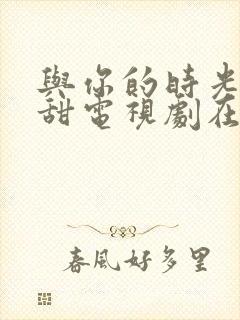 與你的時光
甜電視劇在
春風好多里